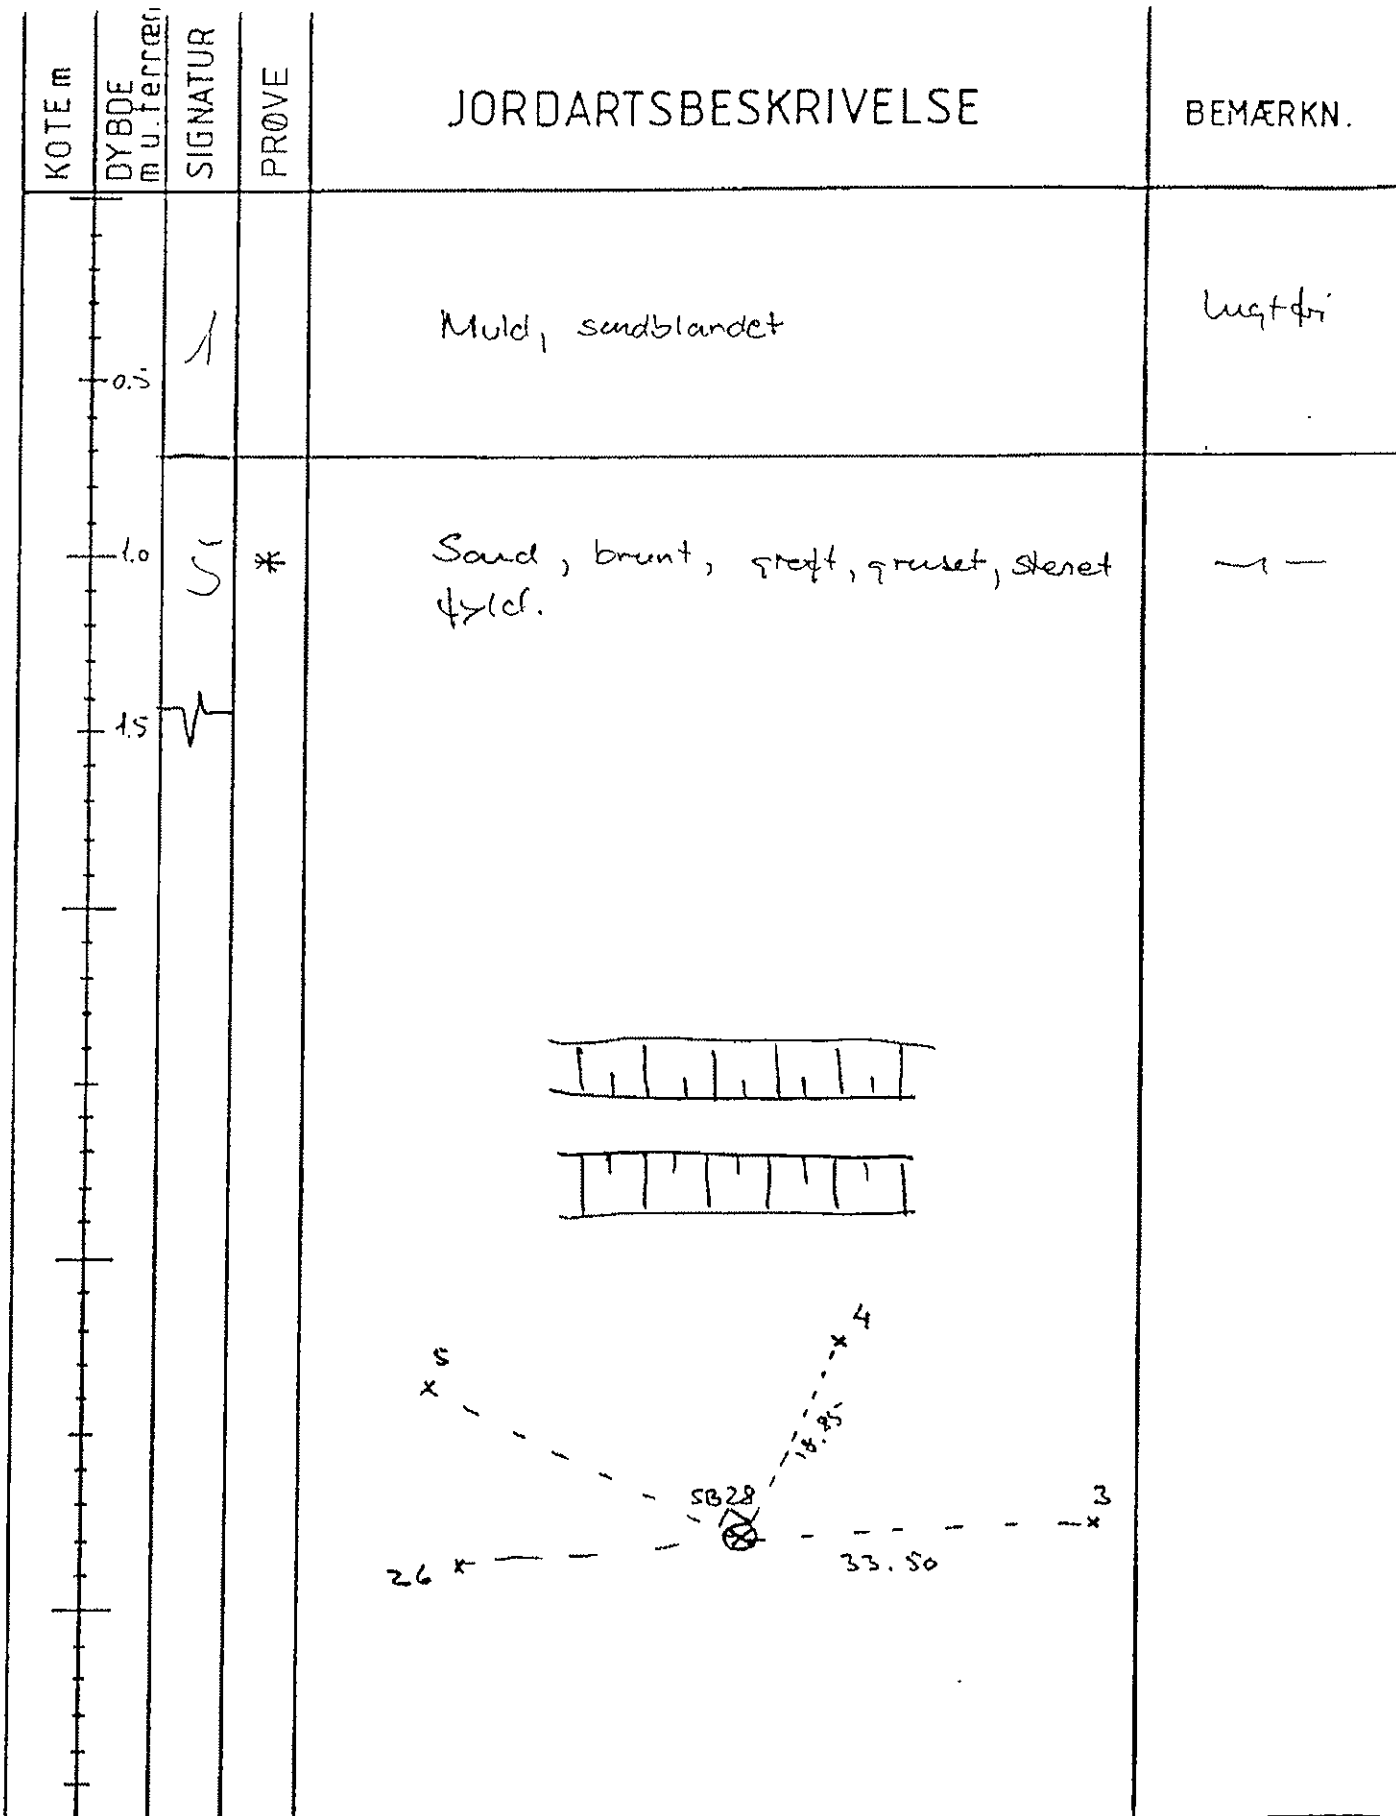 KOTE m
DYBDE
m u. terræn
SIGNATUR
PRØVE
JORDARTSBESKRIVELSE
BEMÆRKN.
1
Muld, sandblandet
lugtfri
0.5
1.0
5
*
Sand, brunt, groft, gruset, stenet
fyld.
1.5
4
5
18.85
SB28
3
26
33.50